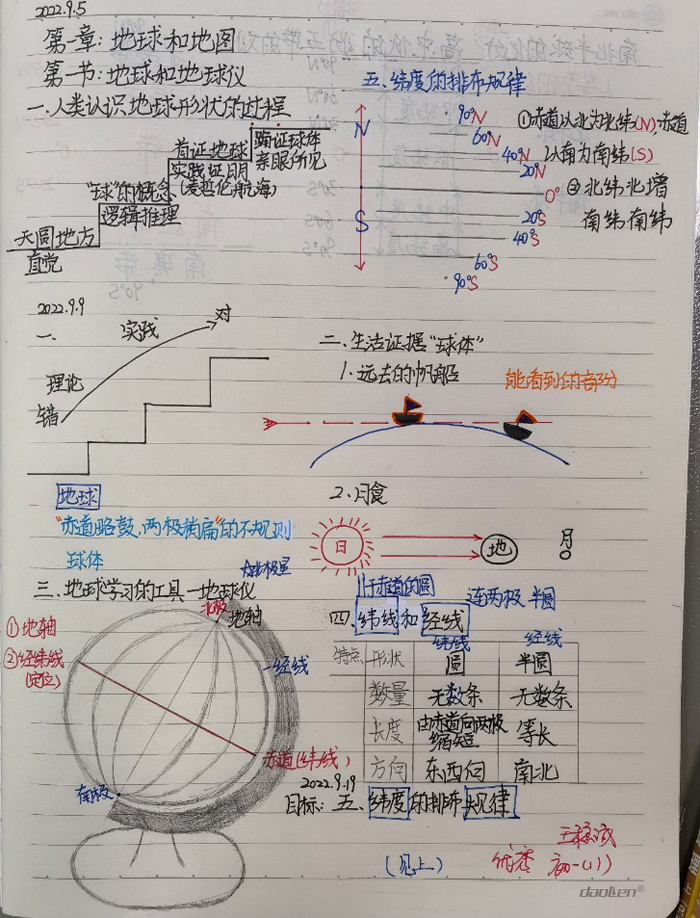 2022.9.5
第一章:地球和地图
第一节:地球和地球仪
一.人类认识地球形状的过程
天圆地方
直觉
"球"的概念
逻辑推理
首证地球
实践证明
(麦哲伦航海)
亲眼所见
五.纬度的排布规律
N
S
90°N
60°N
40°N
20°N
0°
20°S
40°S
60°S
90°S
①赤道以北为北纬(N),赤道
以南为南纬(S)
②北纬北增
南纬南纬
2022.9.9
一.
实践
对
理论
错
二.生活证据"球体"
1.远去的帆船
能看到的部分
地球
"赤道略鼓,两极稍扁"的不规则
球体
2.月食
日
地
月
三.地球学习的工具—地球仪
北极星
北极
地轴
①地轴
②经纬线
(定位)
经线
赤道(纬线)
南极
于赤道的圆
连两极 半圆
四.纬线和经线
特点 形状 纬线 圆 经线 半圆
数量 无数条 无数条
长度 由赤道向两极缩短 等长
方向 东西向 南北
2022.9.19
目标:五、纬度的排布规律
(见上)
优秀 初一(1)
daolen®